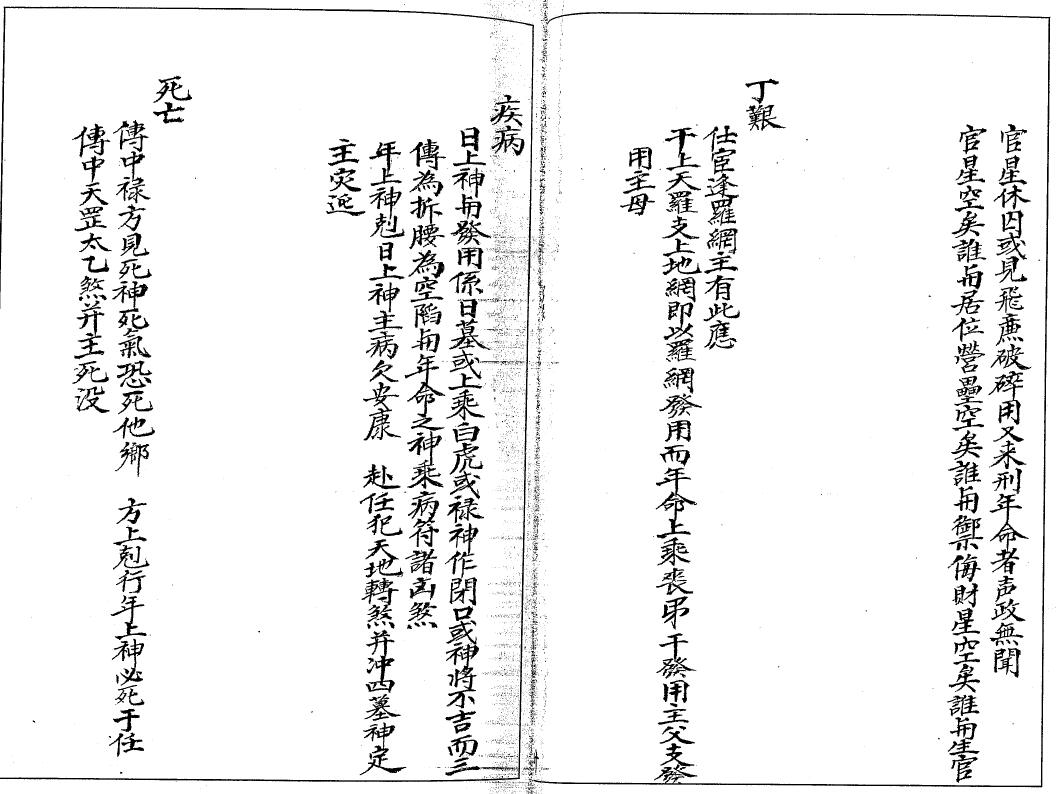 官星休囚或見飛廉破碎用又来刑年命者声政無聞
官星空矣誰與居位營壘空矣誰與禦侮財星空矣誰與生官
丁艱
仕宦逢羅網主有此應
干上天羅支上地網即以羅網發用而年命上乘丧吊干發用主父支發
用主母
疾病
日上神與發用係日墓或上乘白虎或禄神作閉口或神將不吉而三
傳為折腰為空陷與年命之神乘病符諸凶煞
年上神剋日上神主病欠安康 赴任犯天地轉煞并冲四墓神定
主灾迍
死亡
傳中禄方見死神死氣恐死他鄉 方上剋行年上神必死于任
傳中天罡太乙煞并主死没